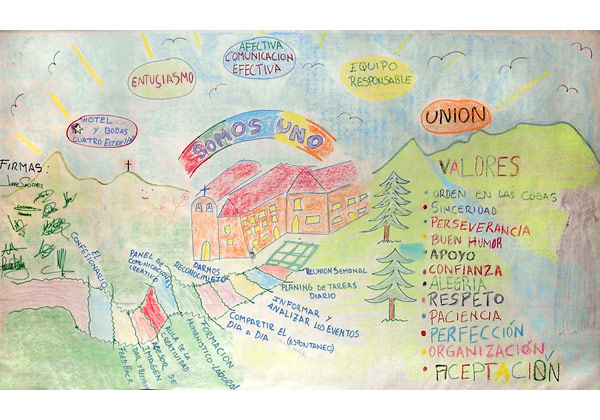 AFECTIVA
COMUNICACIÓN
EFECTIVA
ENTUSIASMO
EQUIPO
RESPONSABLE
HOTEL
Y BODAS
CUATRO ESTRELLAS
UNION
SOMOS UNO
FIRMAS:
VALORES
• ORDEN EN LAS COSAS
• SINCERIDAD
• PERSEVERANCIA
• BUEN HUMOR
• APOYO
• CONFIANZA
• ALEGRIA
• RESPETO
• PACIENCIA
• PERFECCIÓN
• ORGANIZACIÓN
• ACEPTACIÓN
EL
CONFESIONARIO
PANEL DE
COMUNICACIONES
CREATIVO
DARNOS
RECONOCIMIENTO
REUNION SEMANAL
PLANING DE TAREAS
DIARIO
INFORMAR Y
ANALIZAR LOS EVENTOS
COMPARTIR EL
DIA A DIA
(ESPONTANEO)
FORMACIÓN
HUMANISTICO-LABORAL
AULA DE LA
CREATIVIDAD
ASESOR DE
IMAGEN
DAR Y RECIBIR
FEEDBACK